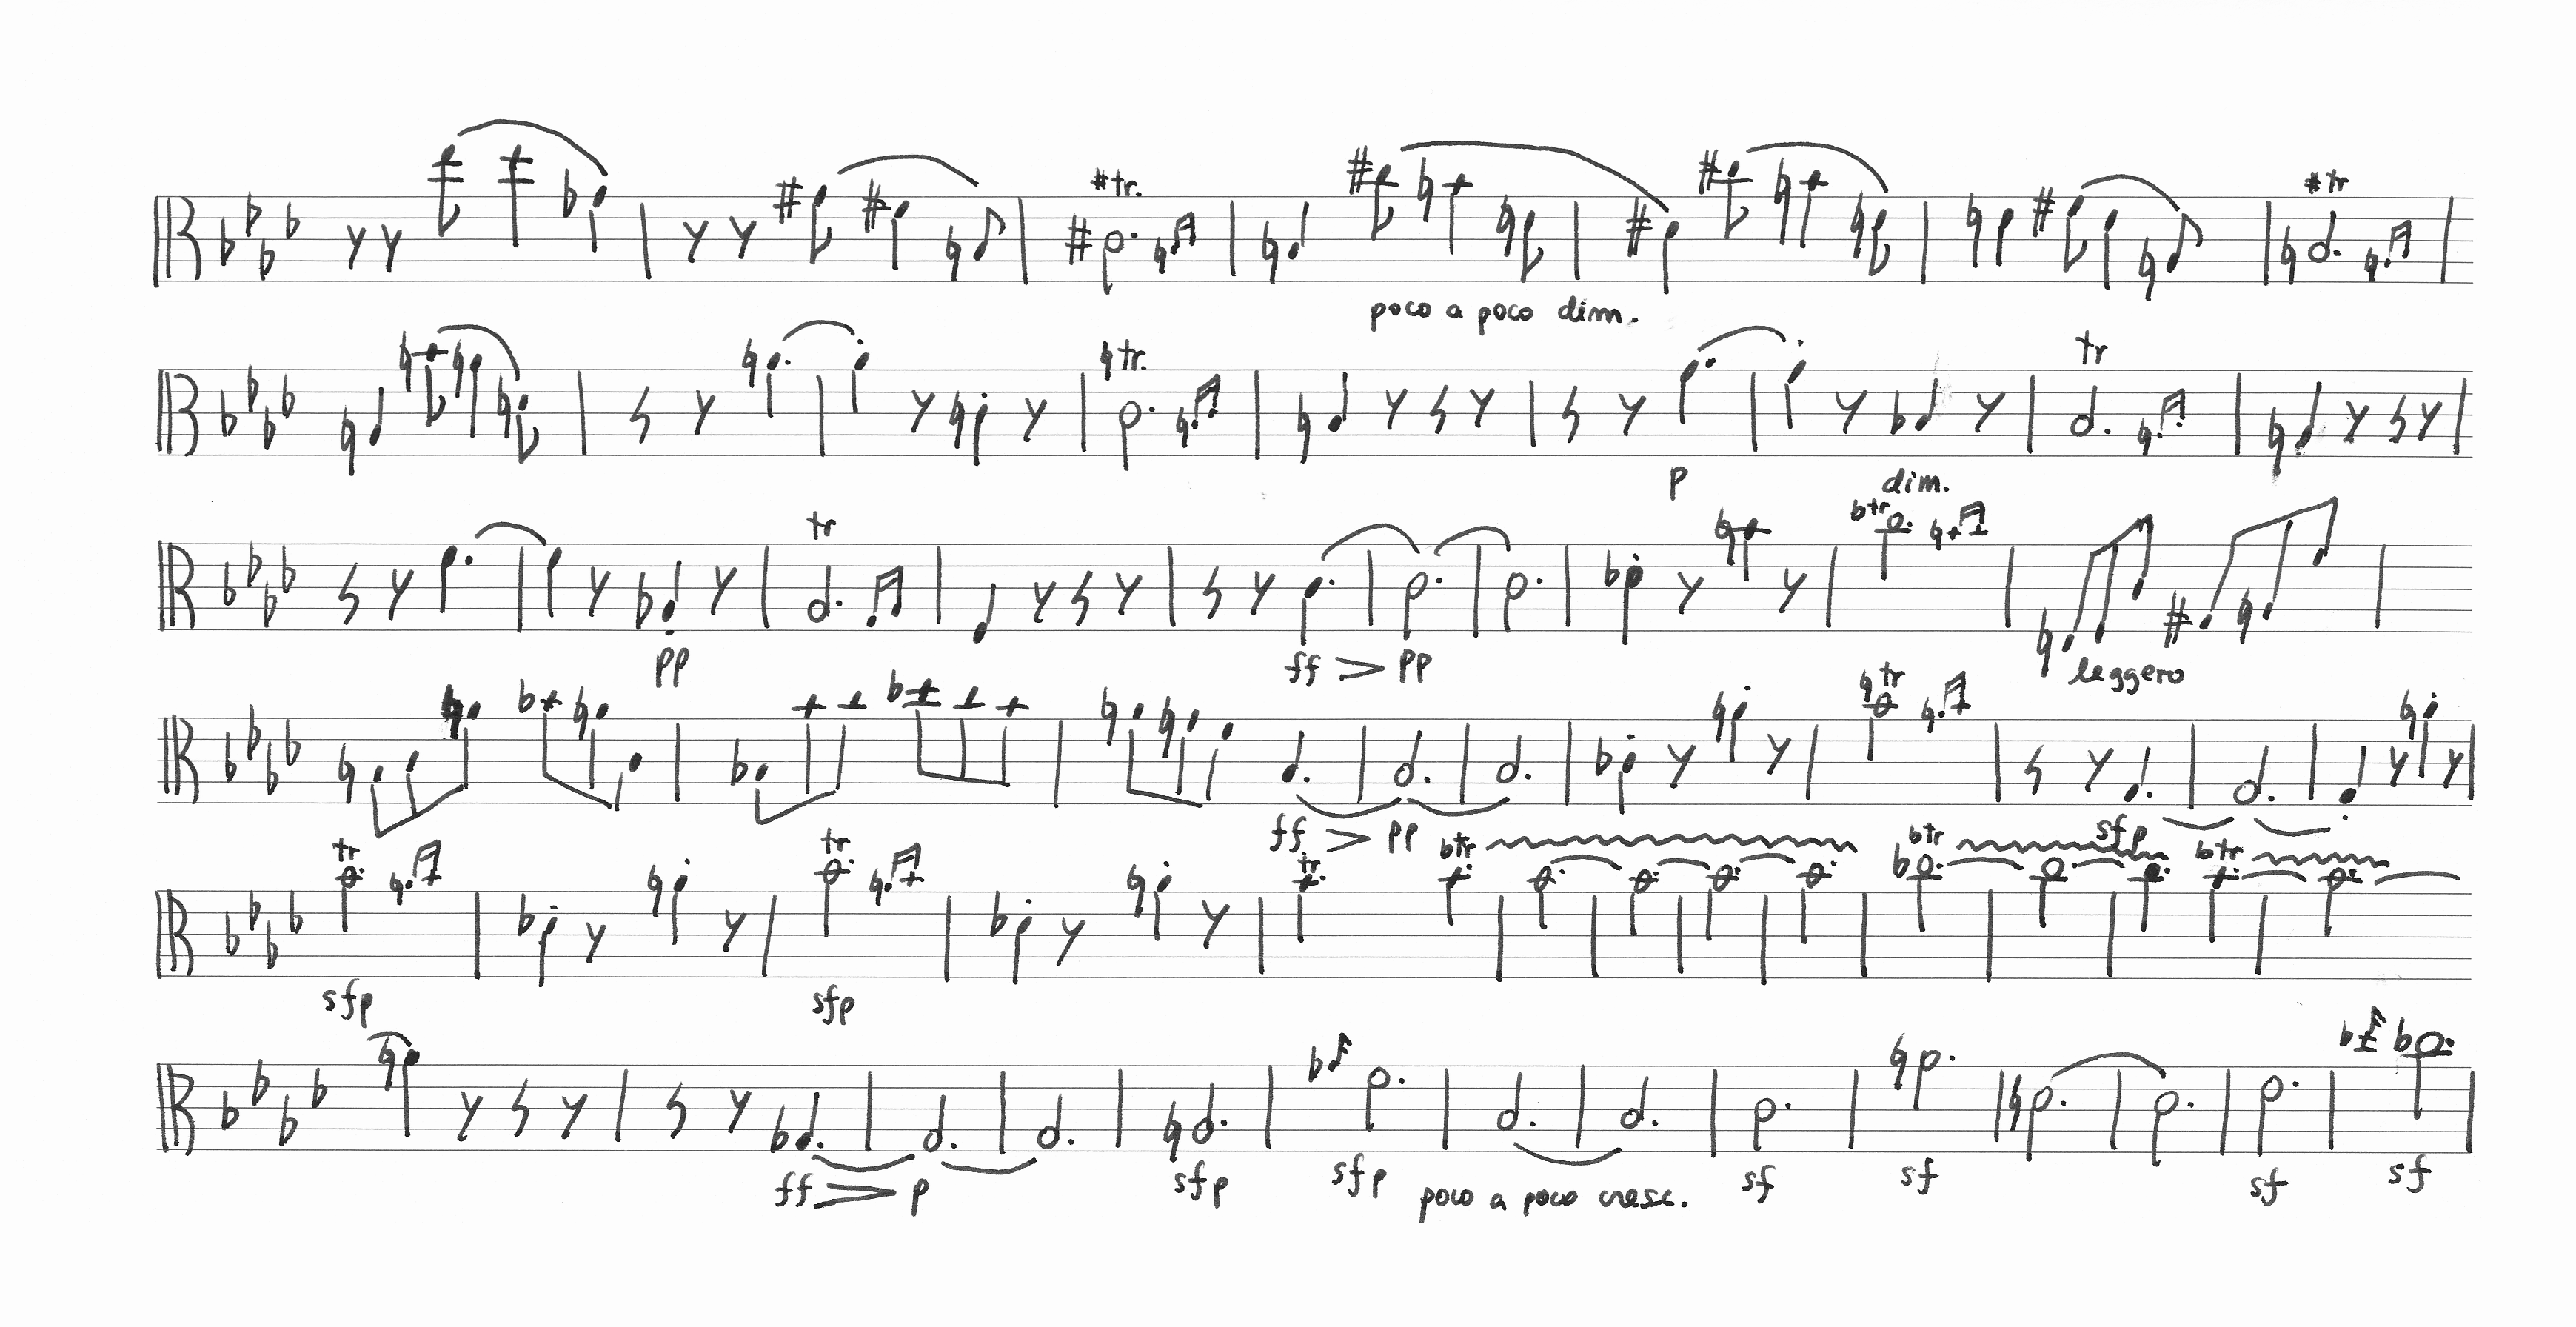 #tr. #tr
poco a poco dim.
♮tr. tr
p dim.
tr b tr
pp ff > pp leggero
♮tr
ff > pp sfp
tr tr tr. btr btr btr
sfp sfp
ff > p sfp sfp poco a poco cresc. sf sf sf sf